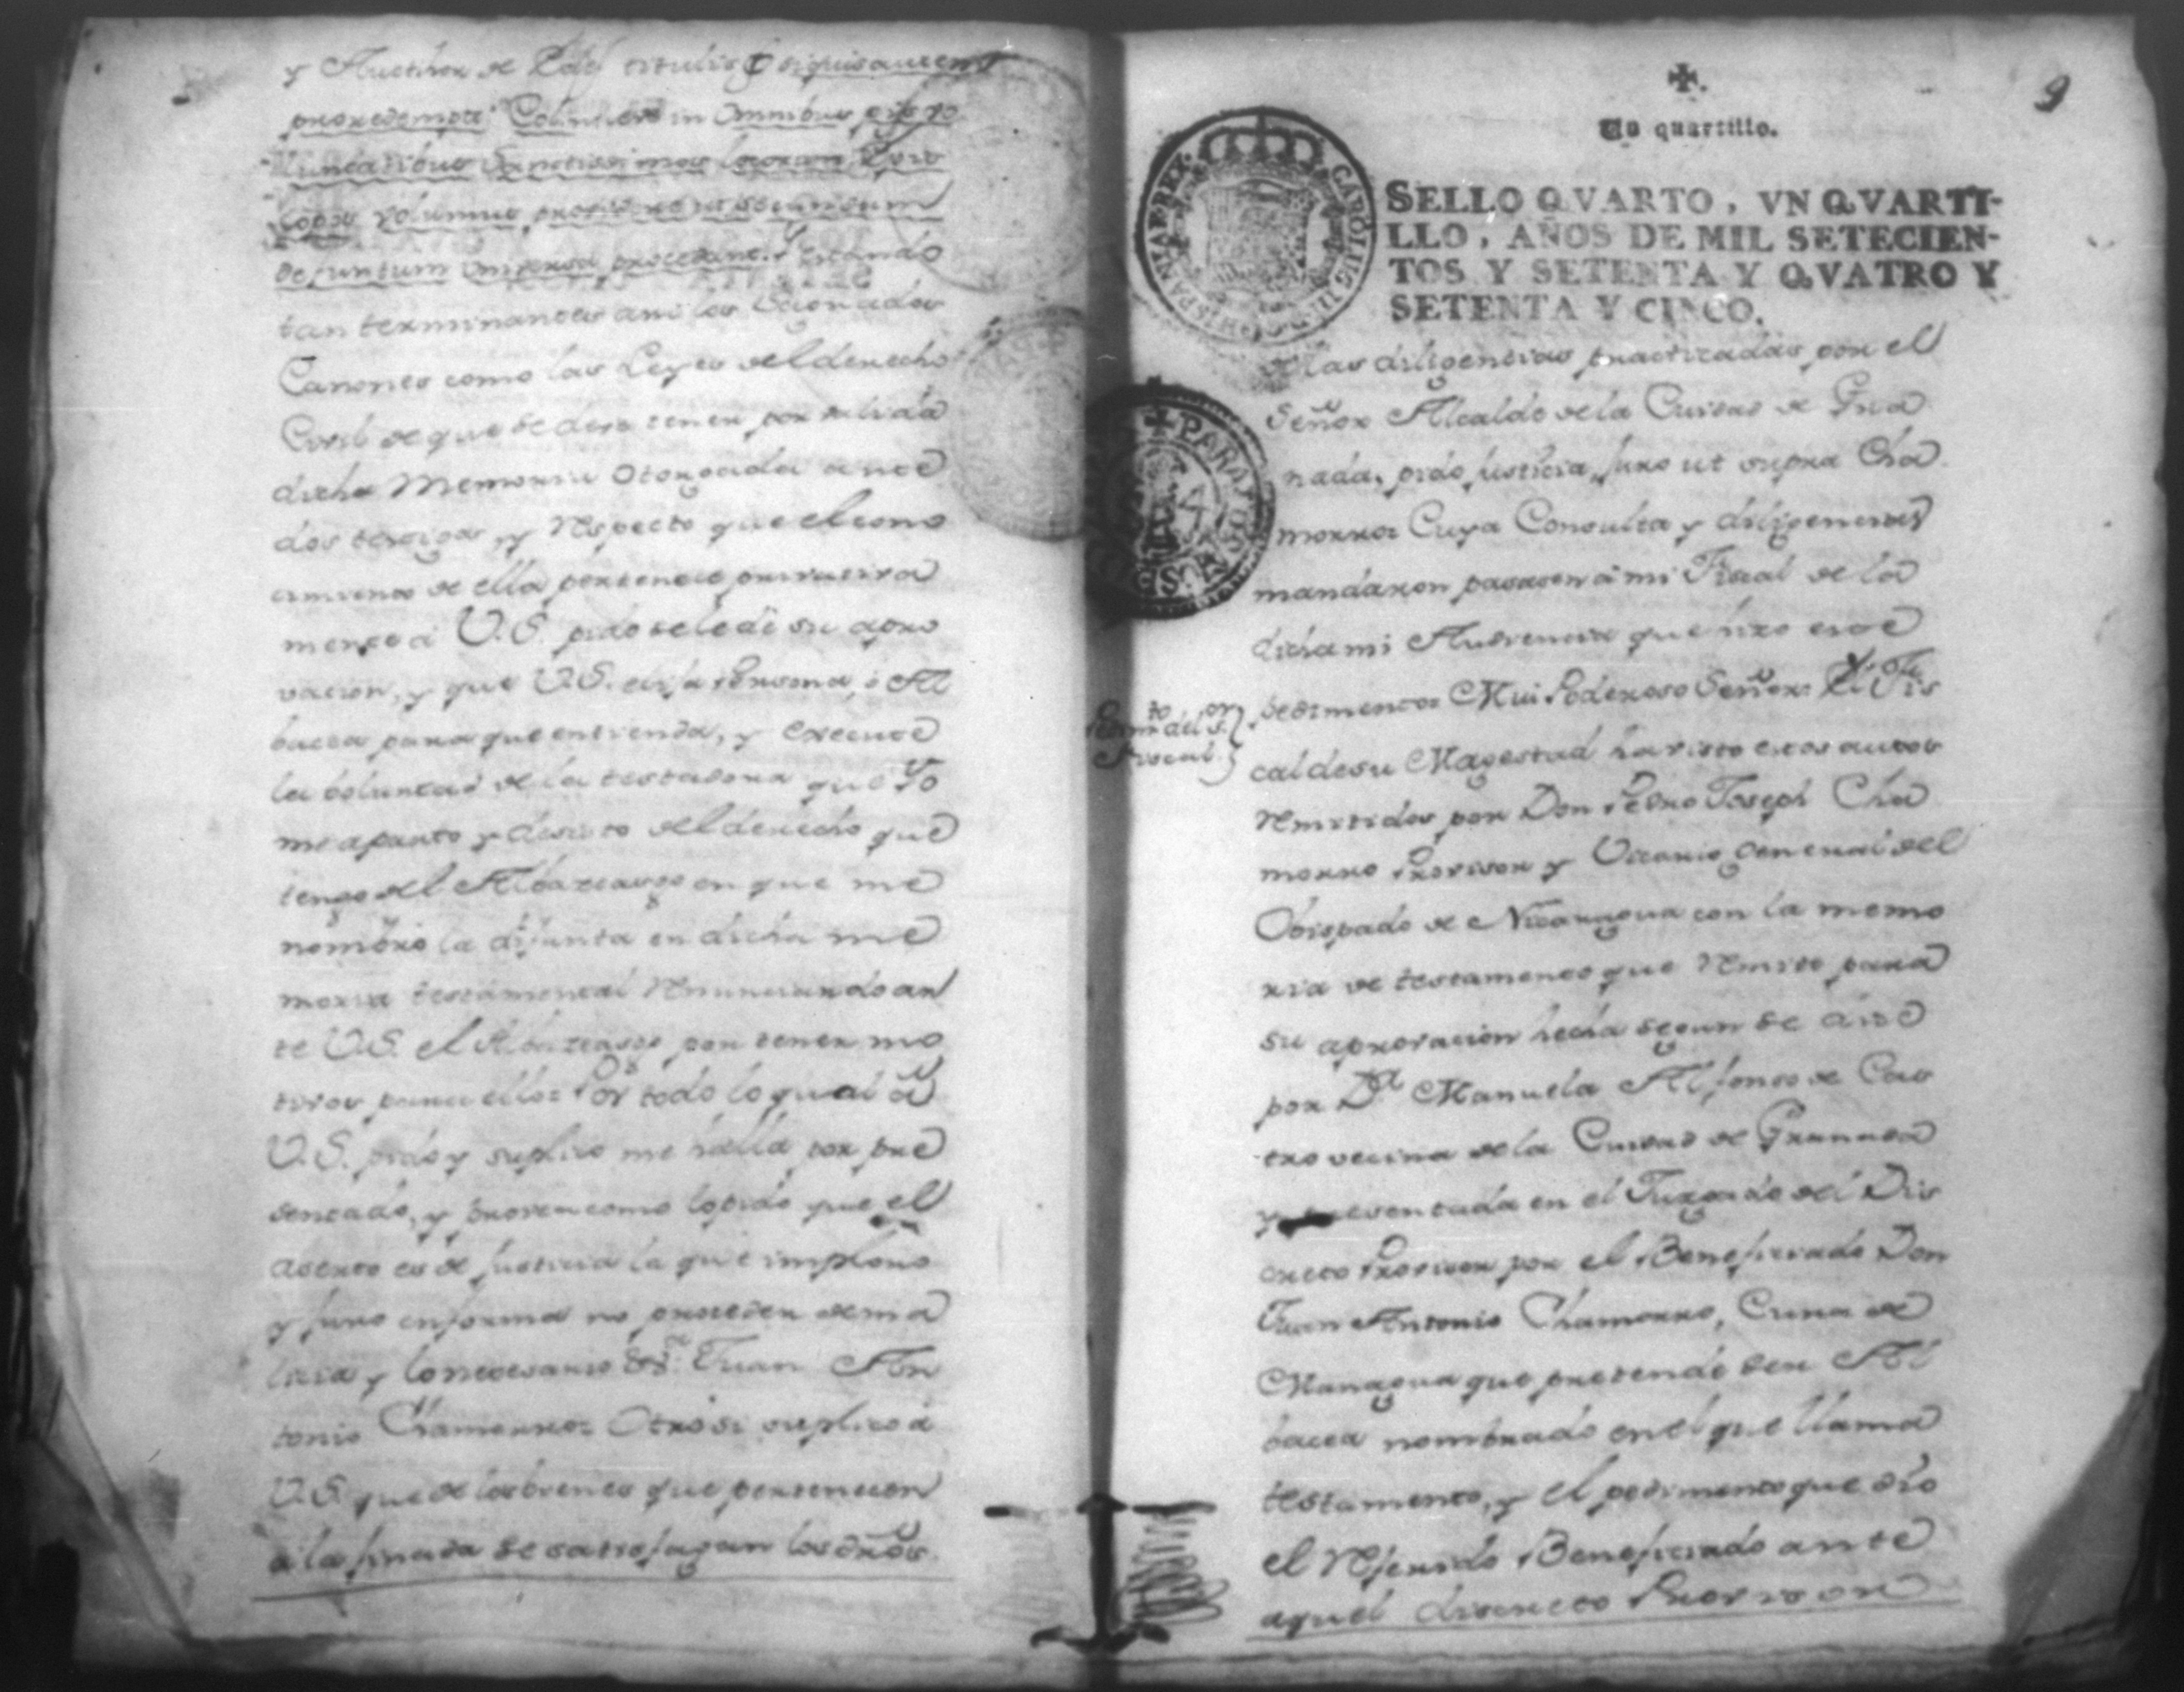 y
proxedempt: in Omnibus
volumus
defuntum procedant. Y estando
tan terminantes asi los
Canones como las Leyes del derecho
Civil de que se deve tener por valida
dicha Memoria Otorgada ante
dos testigos, y respecto que el cono
cimiento de ella pertenece privativa
mente a V.S. pido se le dé su apro
vacion, y que V.S. elija Persona, ó Al
bacea para que entienda, y execute
la boluntad de la testadora que Yo
me aparto y desisto del derecho que
tengo del Albaceasgo en que me
nombró la difunta en dicha me
moria testamental renunciando an
te V.S. el Albaceasgo por tener mo
tivos para ello= Por todo lo qual á
V.S. pido y suplico me halla por pre
sentado, y provea como lo pido que el
es de justicia la que imploro
y juro en forma no proceder de ma
licia y lo necesario &ª. Juan An
tonio Chamorro= Otro si suplico á
V.S. que de los bienes que pertenecen
a la finada se satisfagan los dros.
9
Un quartillo.
SELLO QVARTO, VN QVARTI-
LLO, AÑOS DE MIL SETECIEN-
TOS Y SETENTA Y QVATRO Y
SETENTA Y CINCO.
CAROLUS III HISPANIAR REX
PARA LOS
las diligencias practicadas por el
Señor Alcalde de la Ciudad de Gra
nada, pido justicia, juro ut supra Cha
morro= Cuya Consulta y diligencias
mandaron pasasen á mi Fiscal de la
dicha mi Audiencia que hizo este
Pedimto del Sor
Fiscal.
pedimento= Mui Poderoso Señor= El Fis
cal de su Magestad ha visto estos autos
remitidos por Don Pedro Joseph Cha
morro Provisor y Vicario General del
Obispado de Nicaragua con la memo
ria de testamento que remite para
su aprovacion hecha segun se dice
por Dª Manuela Alfonso de Cas
tro vecina de la Ciudad de Granada
y presentada en el Juzgado del Dis
creto Provisor por el Beneficiado Don
Juan Antonio Chamorro, Cura de
Managua que pretende ser Al
bacea nombrado en el que llama
testamento, y el pedimento que dio
el referido Beneficiado ante
aquel discreto Provisor